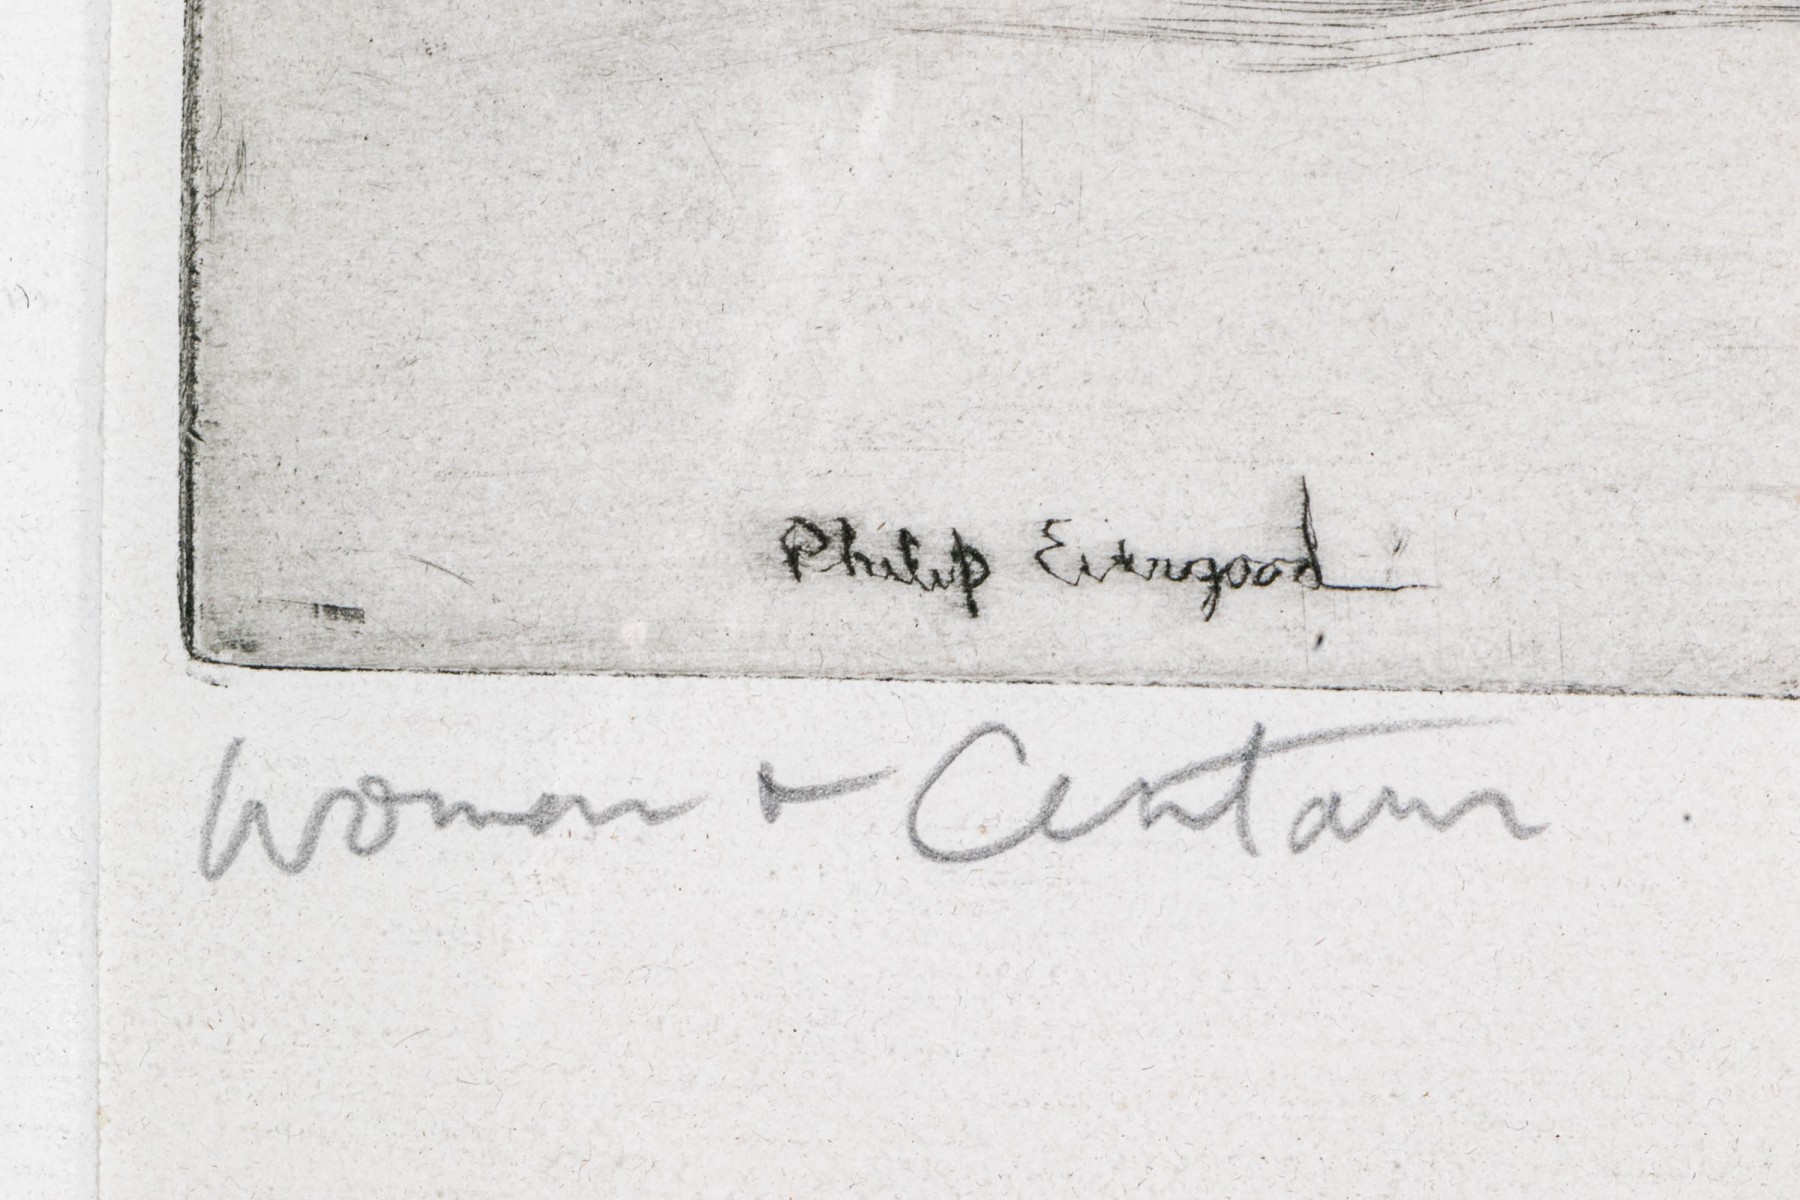 Philip Evergood
Woman + Centaur